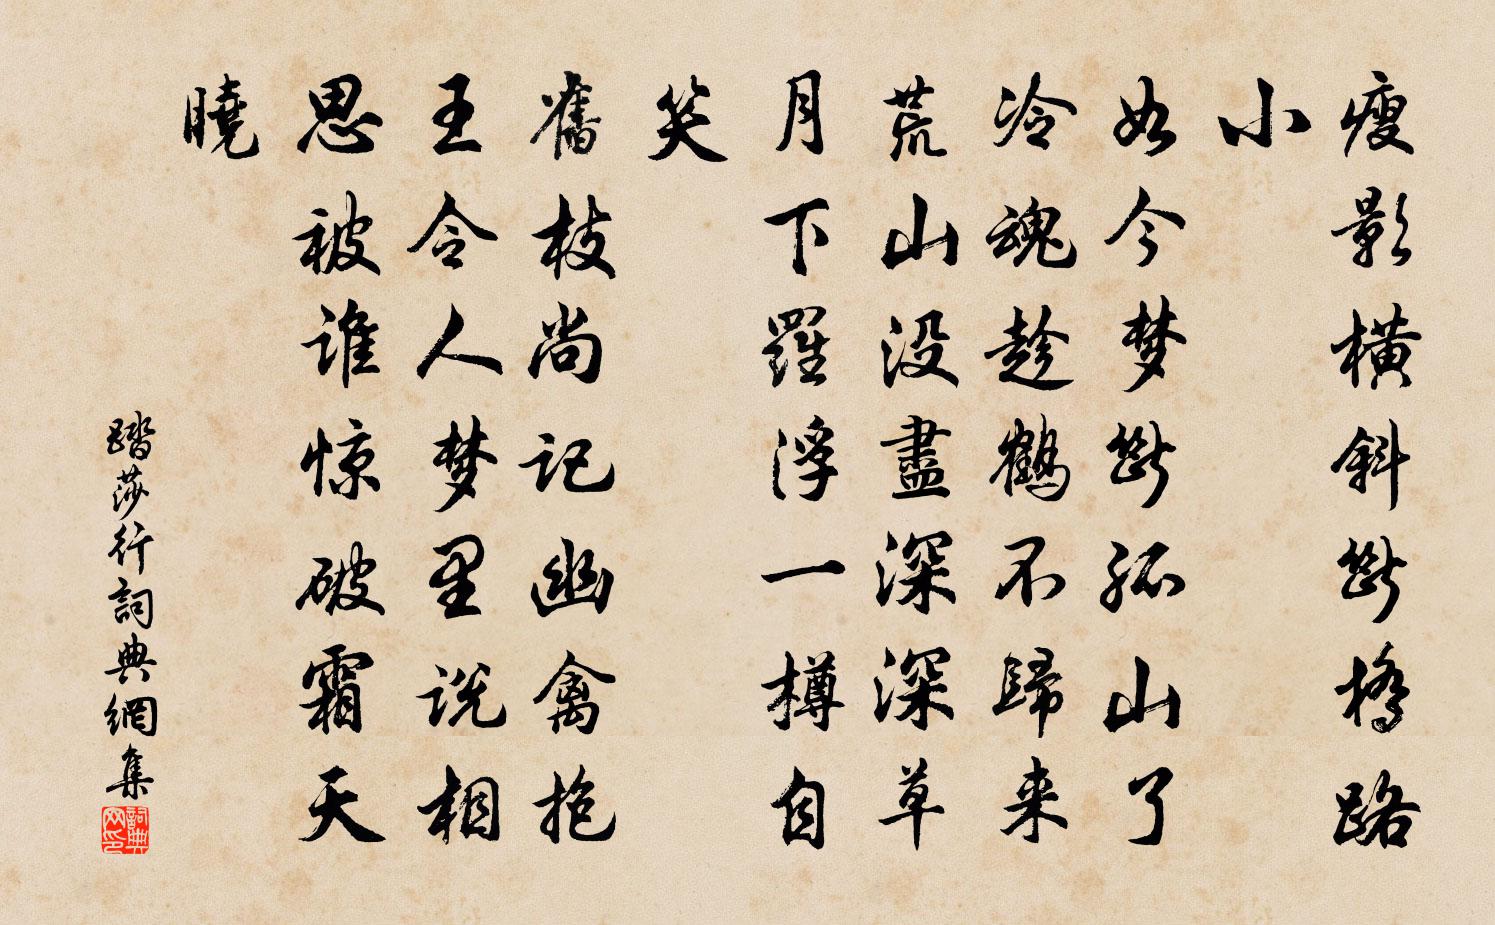 瘦影橫斜斷橋路
小
如今梦斷孤山了
冷魂趁鶴不歸来
荒山没盡深深草
月下羅浮一樽自
笑
舊枝尚记幽禽抱
王令人梦里说相
思被谁惊破霜天
曉
踏莎行詞典網集
詞典网印